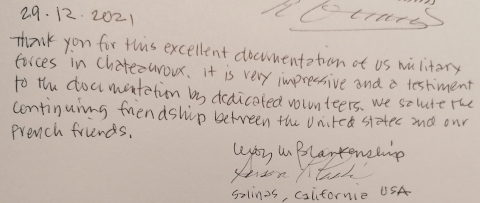 29.12.2021
Thank you for this excellent documentation of US military
forces in Chateauroux. it is very impressive and a testiment
to the documentation by dedicated volunteers. We salute the
continuing friendship between the United States and our
French friends.
Blankenship
Salinas, California USA